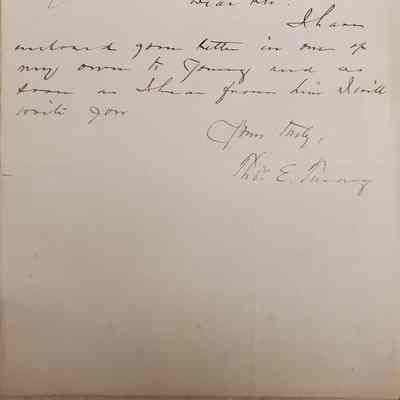 Dear Sir:
I have
inclosed your letter in one of
my own to Young and as
soon as I hear from him I will
write you
Yours truly,
Thos. E.